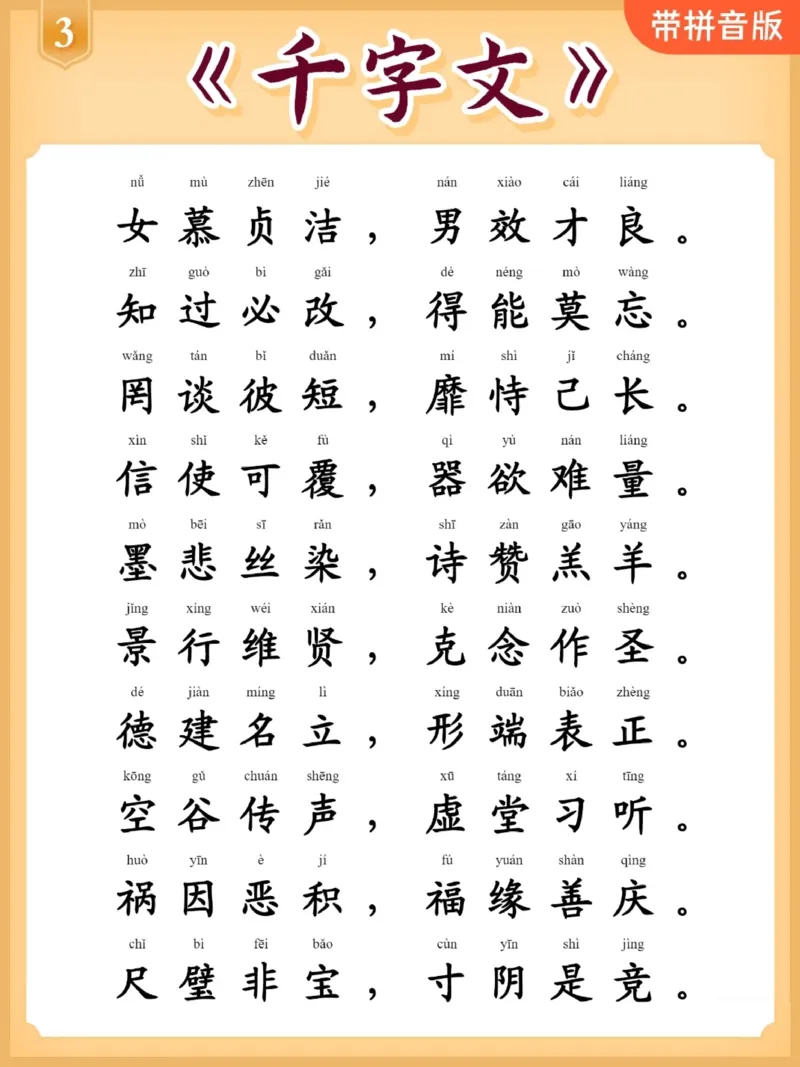 3
带拼音版
《千字文》
nǚ mù zhēn jié nán xiào cái liáng
女慕贞洁，男效才良。
zhī guò bì gǎi dé néng mò wàng
知过必改，得能莫忘。
wǎng tán bǐ duǎn mí shì jǐ cháng
罔谈彼短，靡恃己长。
xìn shǐ kě fù qì yù nán liáng
信使可覆，器欲难量。
mò bēi sī rǎn shī zàn gāo yáng
墨悲丝染，诗赞羔羊。
jǐng xíng wéi xián kè niàn zuò shèng
景行维贤，克念作圣。
dé jiàn míng lì xíng duān biǎo zhèng
德建名立，形端表正。
kōng gǔ chuán shēng xū táng xí tīng
空谷传声，虚堂习听。
huò yīn è jí fú yuán shàn qìng
祸因恶积，福缘善庆。
chǐ bì fēi bǎo cùn yīn shì jìng
尺璧非宝，寸阴是竞。